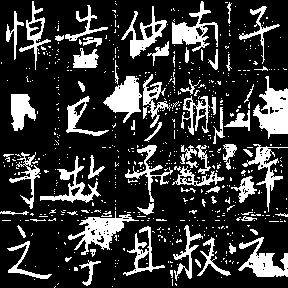 子仲許之
南蒯語叔
仲穆子且
告之故季
悼子之